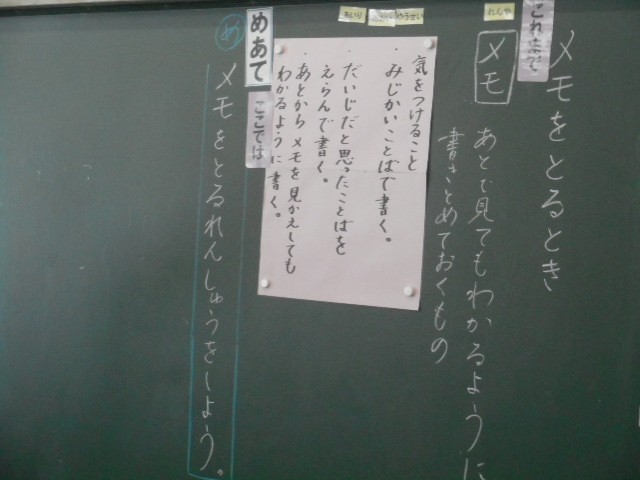 メモをとるとき
これまで
れんや
メモ
あとで見てもわかるように
書きとめておくもの
気をつけること
・みじかいことばで書く。
・だいじだと思ったことばを
えらんで書く。
・あとからメモを見かえしても
わかるように書く。
めあて
ここでは
め
メモをとるれんしゅうをしよう。